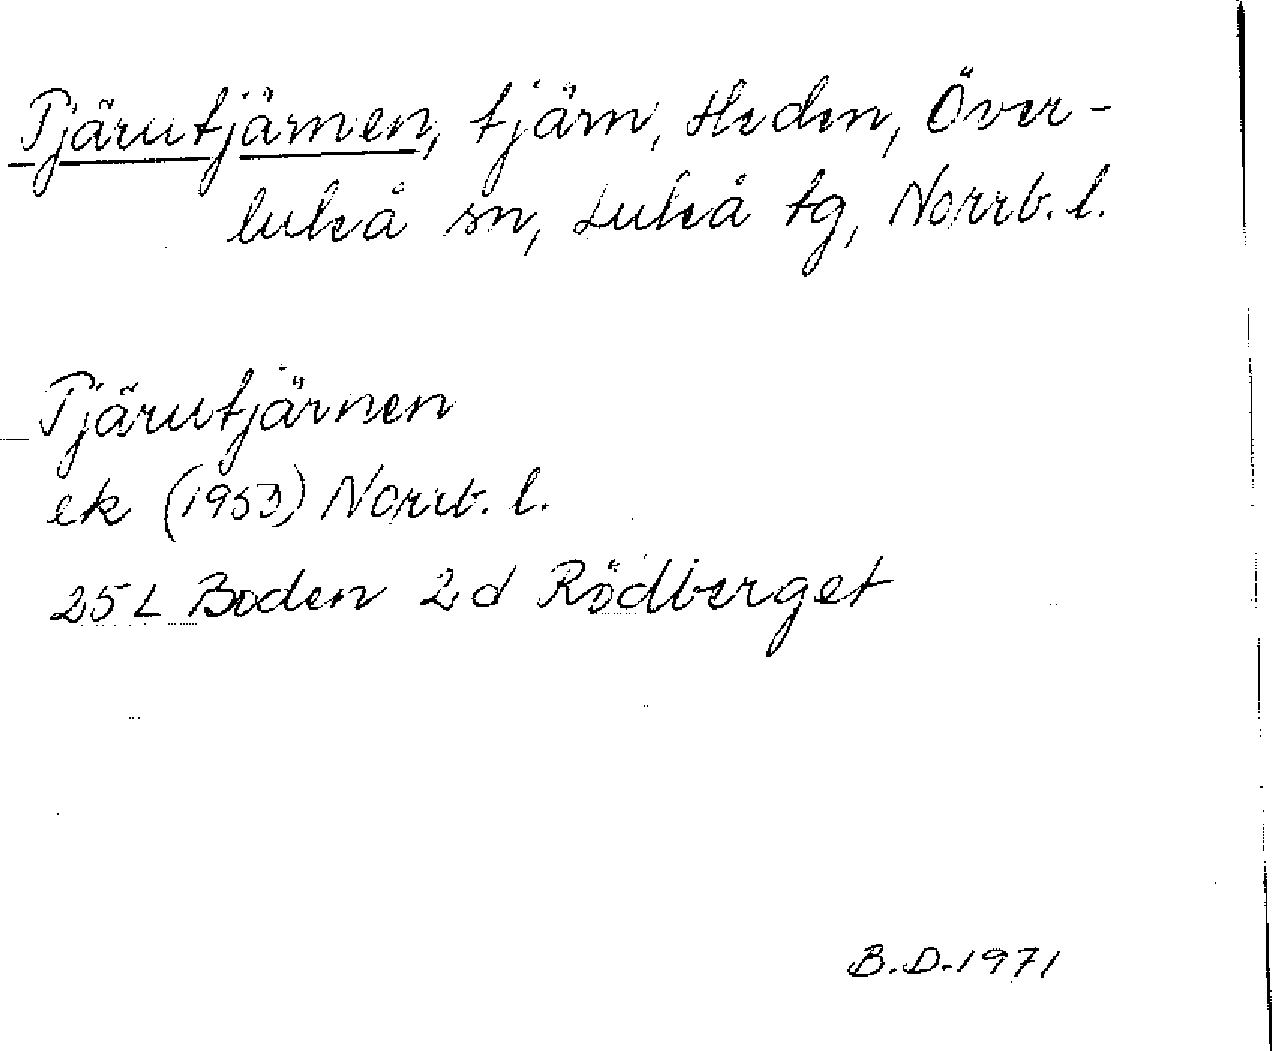 Tjärutjärnen, tjärn, Heden, Över-
luleå sn, Luleå tg, Norrb. l.
Tjärutjärnen
ek (1953) Norrb. l.
25 L Boden 2 d Rödberget
B.D. 1971